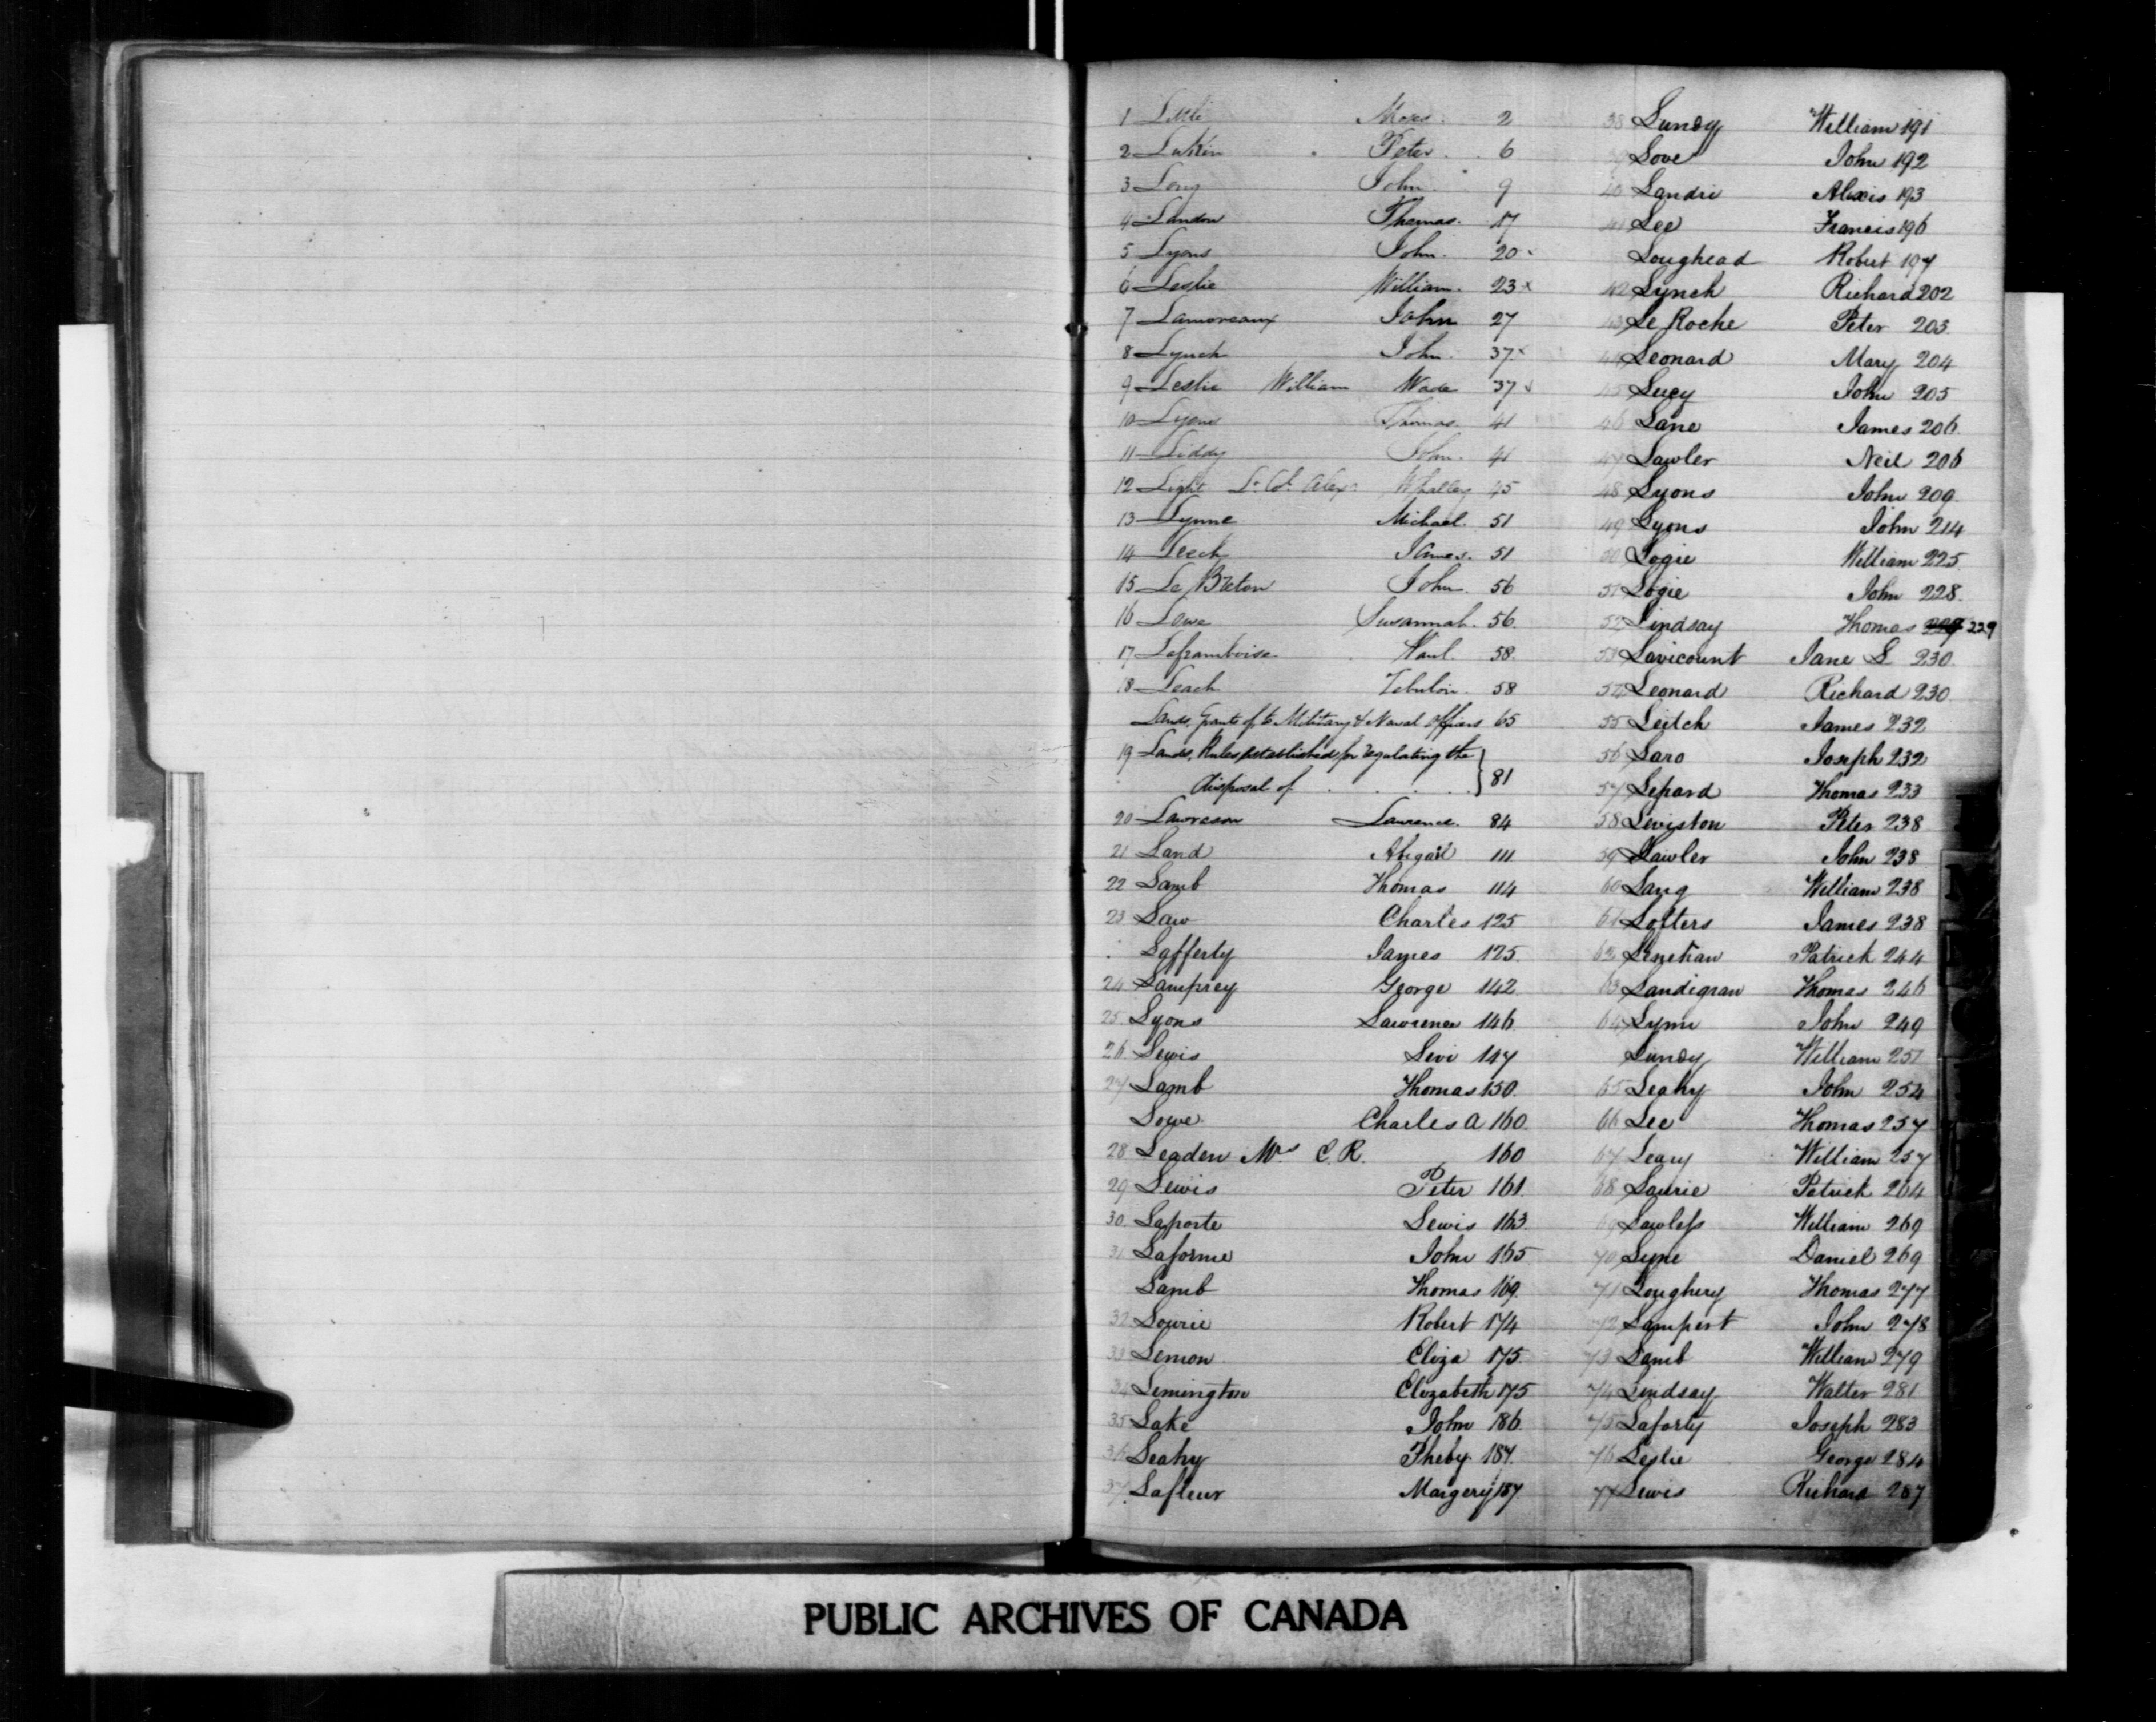 1 Little Moses 2
2 Lukin Peter 6
3 Long John 9
4 Landon Thomas 17
5 Lyons John 20 x
6 Leslie William 23 x
7 Lamoreaux John 27
8 Lynch John 37 x
9 Leslie William Wade 37 x
10 Lyons Thomas 41
11 Liddy John 41
12 Light Lt. Col. Alexr. Whalley 45
13 Lynne Michael 51
14 Leech James 51
15 Le Breton John 56
16 Lowe Susannah 56
17 Laframboise Paul 58
18 Leach Zebulon 58
Lands, Grants of to Military & Naval Officers 65
19 Lands, Rules established for regulating the
disposal of . . . . 81
20 Lawreson Lawrence 84
21 Land Abigail 111
22 Lamb Thomas 114
23 Law Charles 125
Lafferty James 125
24 Lamprey George 142
25 Lyons Lawrence 146
26 Lewis Levi 147
27 Lamb Thomas 150
Lowe Charles A 160
28 Leaden Mrs C. R. 160
29 Lewis Peter 161
30 Laporte Lewis 163
31 Laforme John 165
Lamb Thomas 169
32 Lowrie Robert 174
33 Lemon Eliza 175
34 Lemington Elizabeth 175
35 Lake John 186
36 Leahy Pheby 187
37 Lafleur Margery 187
38 Lundy William 191
39 Love John 192
40 Landri Alexis 193
41 Lee Francis 196
Loughead Robert 197
42 Lynch Richard 202
43 Le Roche Peter 203
44 Leonard Mary 204
45 Lucy John 205
46 Lane James 206
47 Lawler Neil 206
48 Lyons John 209
49 Lyons John 214
50 Logie William 225
51 Logie John 228
52 Lindsay Thomas 229
53 Lavicount Jane L 230
54 Leonard Richard 230
55 Leitch James 232
56 Laro Joseph 232
57 Lepard Thomas 233
58 Leviston Peter 238
59 Lawler John 238
60 Lang William 238
61 Lofters James 238
62 Lenehan Patrick 244
63 Landigran Thomas 246
64 Lynn John 249
Lundy William 251
65 Leahy John 254
66 Lee Thomas 257
67 Leary William 257
68 Laurie Patrick 264
69 Lawless William 269
70 Lyne Daniel 269
71 Loughery Thomas 277
72 Lampert John 278
73 Lamb William 279
74 Lindsay Walter 281
75 Laforty Joseph 283
76 Leslie George 284
77 Lewis Richard 287
PUBLIC ARCHIVES OF CANADA